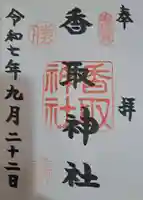 奉拝
香取神社
令和七年九月二十二日
香取神社